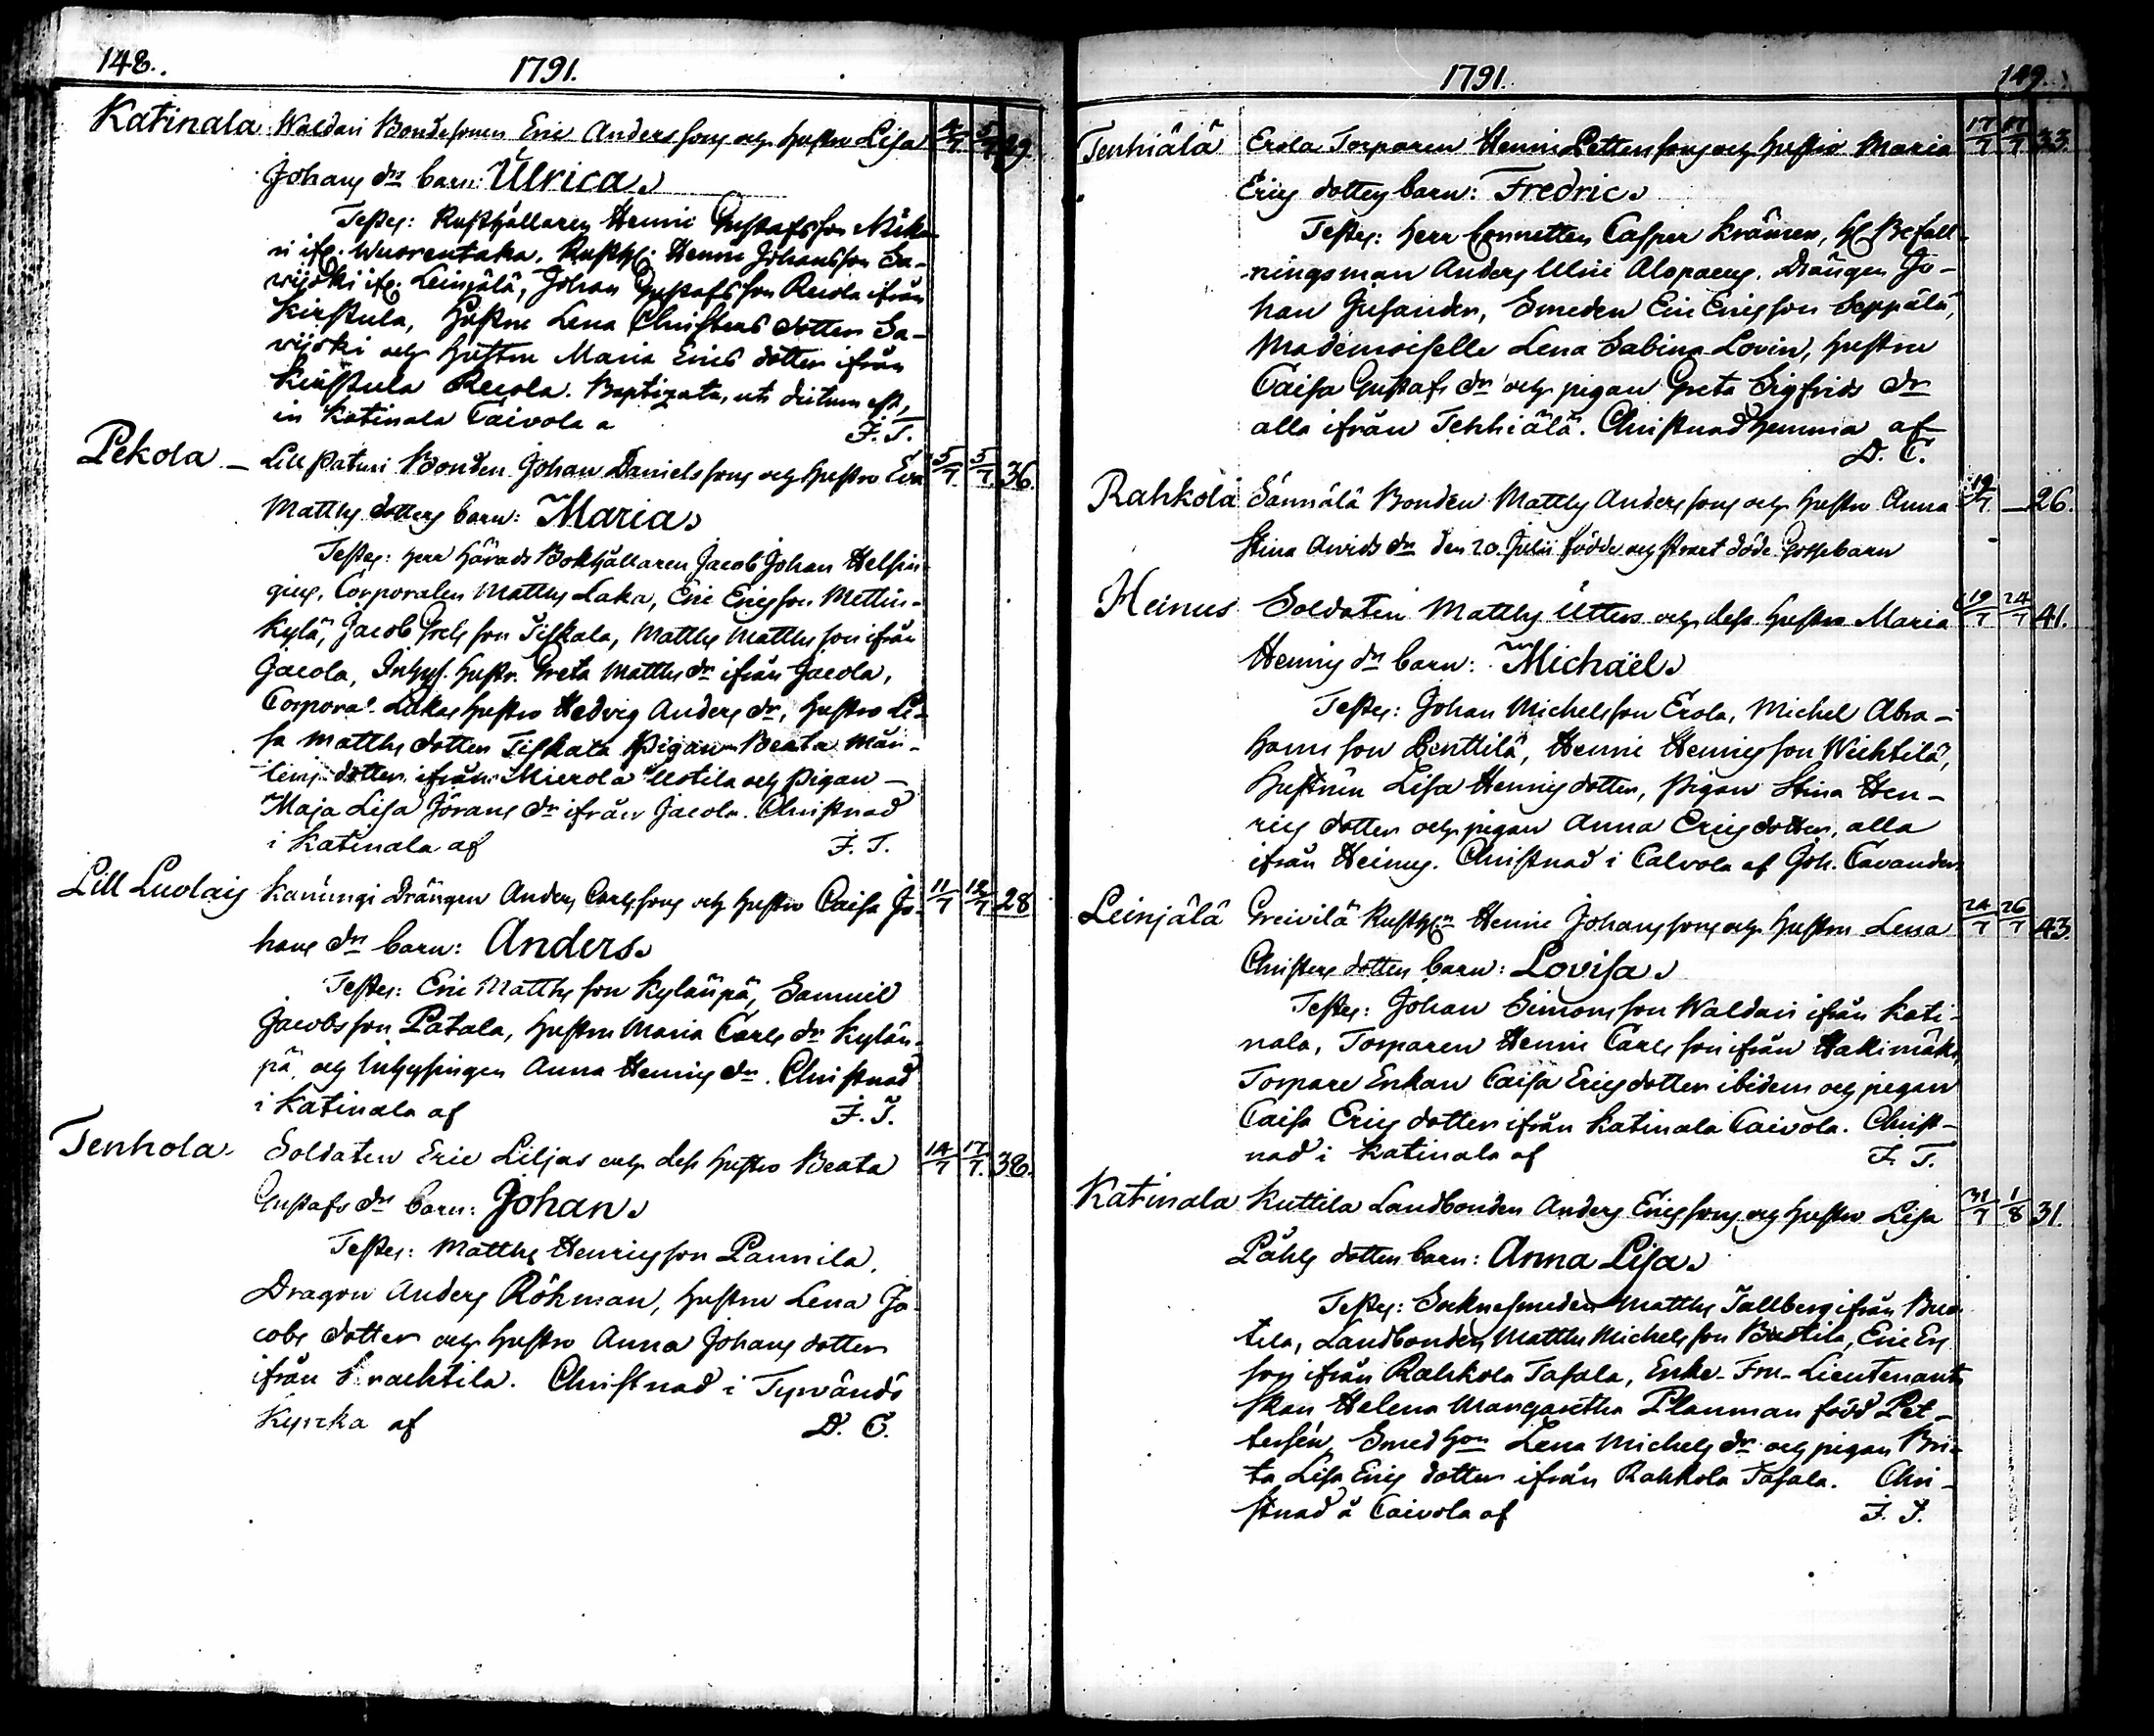 148.
1791.
Katinala Waldari Bondesonen Eric Anderssons och hustru Lisa 4/7 5/7 29.
Johans drs barn: Ulrica.
Testes: Rusthållaren Henric Gustafsson Mika-
ri ifr. Wuorentaka, Rusthl. Henric Johansson Sa-
vijoki ifr. Leinjälä, Johan Gustafsson Reiola ifrån
Kirstula, Hustru Lena Christers dotter Sa-
vijoki och hustru Maria Erics dotter ifrån
Kirstula Reiola. Baptizata, uti dictum est,
in Katinala Caivola a F. T.
Pekola - Lill Paturi Bonden Johan Danielssons och hustru Eva 5/7 5/7 36.
Matths dotters barn: Maria.
Testes: Herr Härads Bokhållaren Jacob Johan Helsin-
gius, Corporalen Matths Laka, Eric Ericsson Mettin-
kylä, Jacob Grelsson Tiskala, Matths Matthsson ifrån
Jacola, Inhys. hustr. Greta Matths dr ifrån Jacola,
Corporal Lakas hustru Hedvig Anders dr, hustru Li-
sa Matths dotter Tiskala Pigan Beata Mår-
tens dotter ifrån Mierola Ustila och Pigan
Maja Lisa Jörans dr ifrån Jacola. Christnad
i Katinala af F. T.
Lill Luolais Kanungi Drängen Anders Carlssons och hustru Caisa Jo- 11/7 12/7 28
hans drs barn: Anders.
Testes: Eric Matthsson Kylänpä, Samuel
Jacobsson Patala, hustru Maria Carls dr Kylän-
pä, och Inhysingen Anna Henrics dr. Christnad
i Katinala af F. T.
Tenhola Soldaten Eric Liljas och dess hustru Beata 14/7 17/7 38.
Gustafs drs barn: Johan.
Testes: Matths Henricsson Pannila,
Dragon Anders Röhman, hustru Lena Ja-
cobs dotter och hustru Anna Johans dotter
ifrån Christnad i Tyrvändö
Kyrcka af D. C.
1791.
149.
Tenhiälä Erola Torparen Henric Petterssons och hustru Maria 17/7 17/7 33.
Erics dotters barn: Fredric.
Testes: Herr Cornetten Casper Krämer, Hl Befall-
ningsman Anders Ulric Alopaeus, Drängen Jo-
han Gusander, Smeden Eric Ericsson Seppälä,
Mademoiselle Lena Sabina Lovin, hustru
Caisa Gustafs dr och pigan Greta Sigfrids dr
alla ifrån Tenhiälä. Christnad hemma af
D. C.
Rahkola Sännälä Bonden Matths Anderssons och hustru Anna 19/7 - 26.
Stina Arvids drs den 20. Julii födde och strart döde Gossebarn
Heinus Soldaten Matths Utters och dess hustru Maria 19/7 24/7 41.
Henrics drs barn: Michaël.
Testes: Johan Michelsson Erola, Michel Abra-
hamsson Penttilä, Henric Henricsson Weihtilä,
Hustrun Lisa Henrics dotter, Pigan Stina Hen-
rics dotter och pigan Anna Erics dotter, alla
ifrån Heinus. Christnad i Calvola af Joh. Cavander
Leinjälä Greivilä Rusthln Henric Johanssons och hustru Lena 24/7 26/7 43.
Christers dotters barn: Lovisa.
Testes: Johan Simonsson Waldari ifrån Kati-
nala, Torparen Henric Carlsson ifrån Hakimäki,
Torpare Enkan Caisa Erics dotter ibidem och pigan
Caisa Erics dotter ifrån Katinala Caivola. Christ-
nad i Katinala af F. T.
Katinala Kuttila Landbonden Anders Ericssons och hustru Lisa 31/7 1/8 31.
Påhls dotters barn: Anna Lisa.
Testes: Socknesmeden Matths Tallberg ifrån
tila, Landbonden Matths Michelsson Eric
son ifrån Rahkola Tafala, Enke-Fru-Lieutenant-
skan Helena Margaretha Planman född Pet-
tersén, Smed hon Lena Michels dr och pigan Bri-
ta Lisa Erics dotter ifrån Rahkola Tafala. Chri-
stnad å Caivola af F. T.